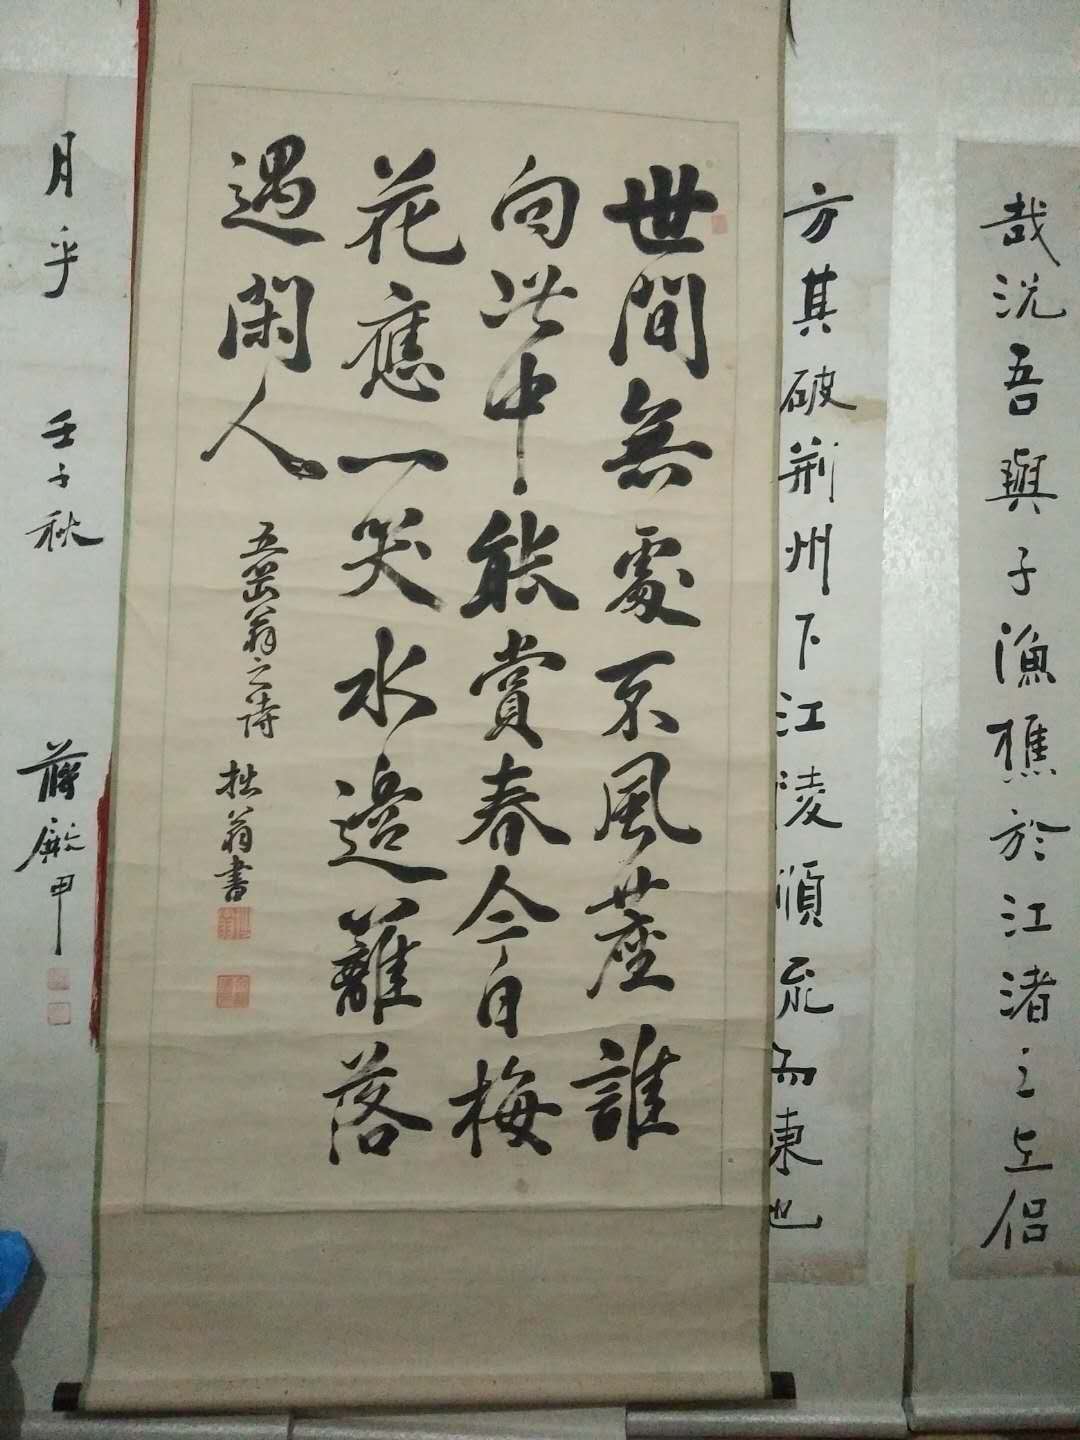 哉况吾與子漁樵於江渚之上侣
方其破荆州下江陵順流而東也
世間無處不風塵誰
向此中能賞春今日梅
花應一笑水邊籬落
遇閑人
五岳翁之詩 拙翁書
月乎
壬子秋
蔣殿甲